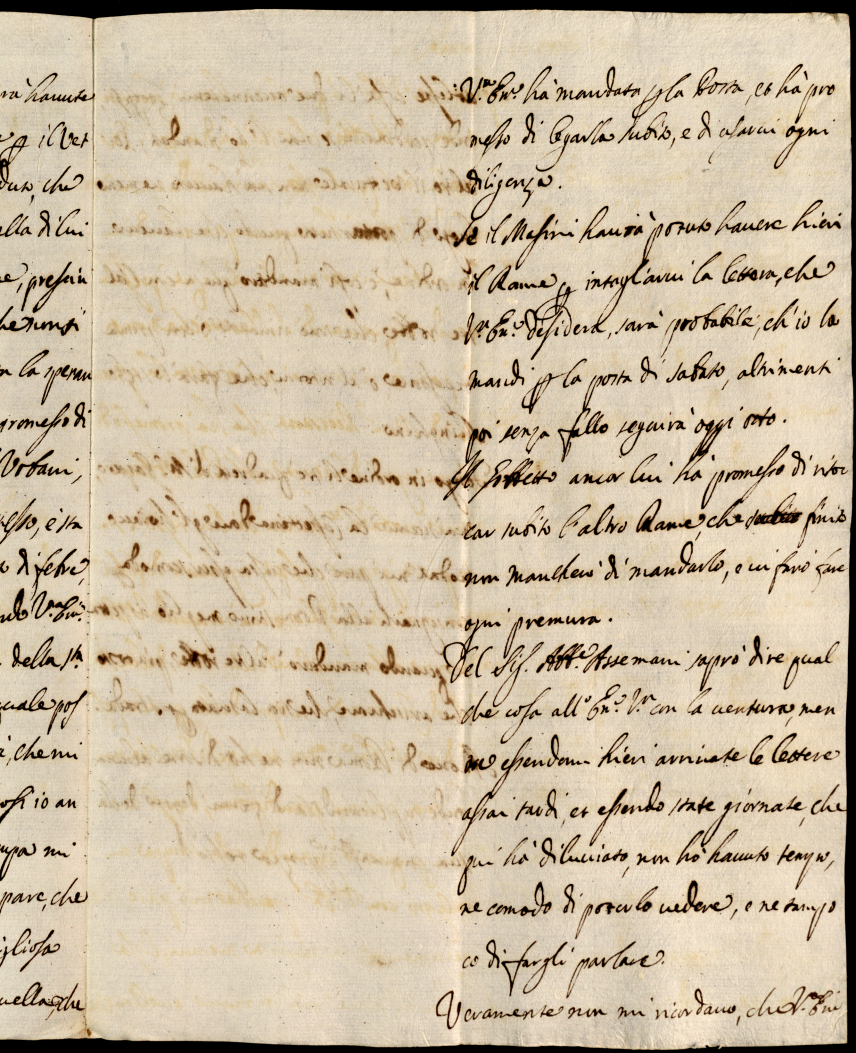 rà havute
e p il Vet
duto, che
ella di lui
ne, prescin
he non si
n la speran
promesso di
Vrbani,
esso, è sta
o di febre,
ndo V.ra Em.
della S.ta
quale pos
à, che mi
osi io an
mpa mi
pare, che
igliosa
uella, che
V.ra Em.a hà mandata p la Posta, et hà pro
messo di legarla subito, e di usarui ogni
diligenza.
Se il Masini hauerà potuto hauere hieri
il Rame p intagliarui la lettera, che
V.a Em.a desidera, sarà probabile, ch'io la
mandi p la posta di sabato, altrimenti
poi senza fallo seguirà oggi otto.
ancor lui hà promesso di ritoc
car subito l'altro Rame, che subito finito
non mancherò di mandarlo, e ui farò fare
ogni premura.
Del Sig. Abb.e Assemani saprò dire qual
che cosa all'Em.a V.ra con la ventura, men
tre essendomi hieri arriuate le lettere
assai tardi, et essendo state giornate, che
qui hà diluuiato, non hò hauuto tempo,
ne comodo di poterlo uedere, e ne tampo
co di fargli parlare.
Veramente non mi ricordauo, che V.a Em